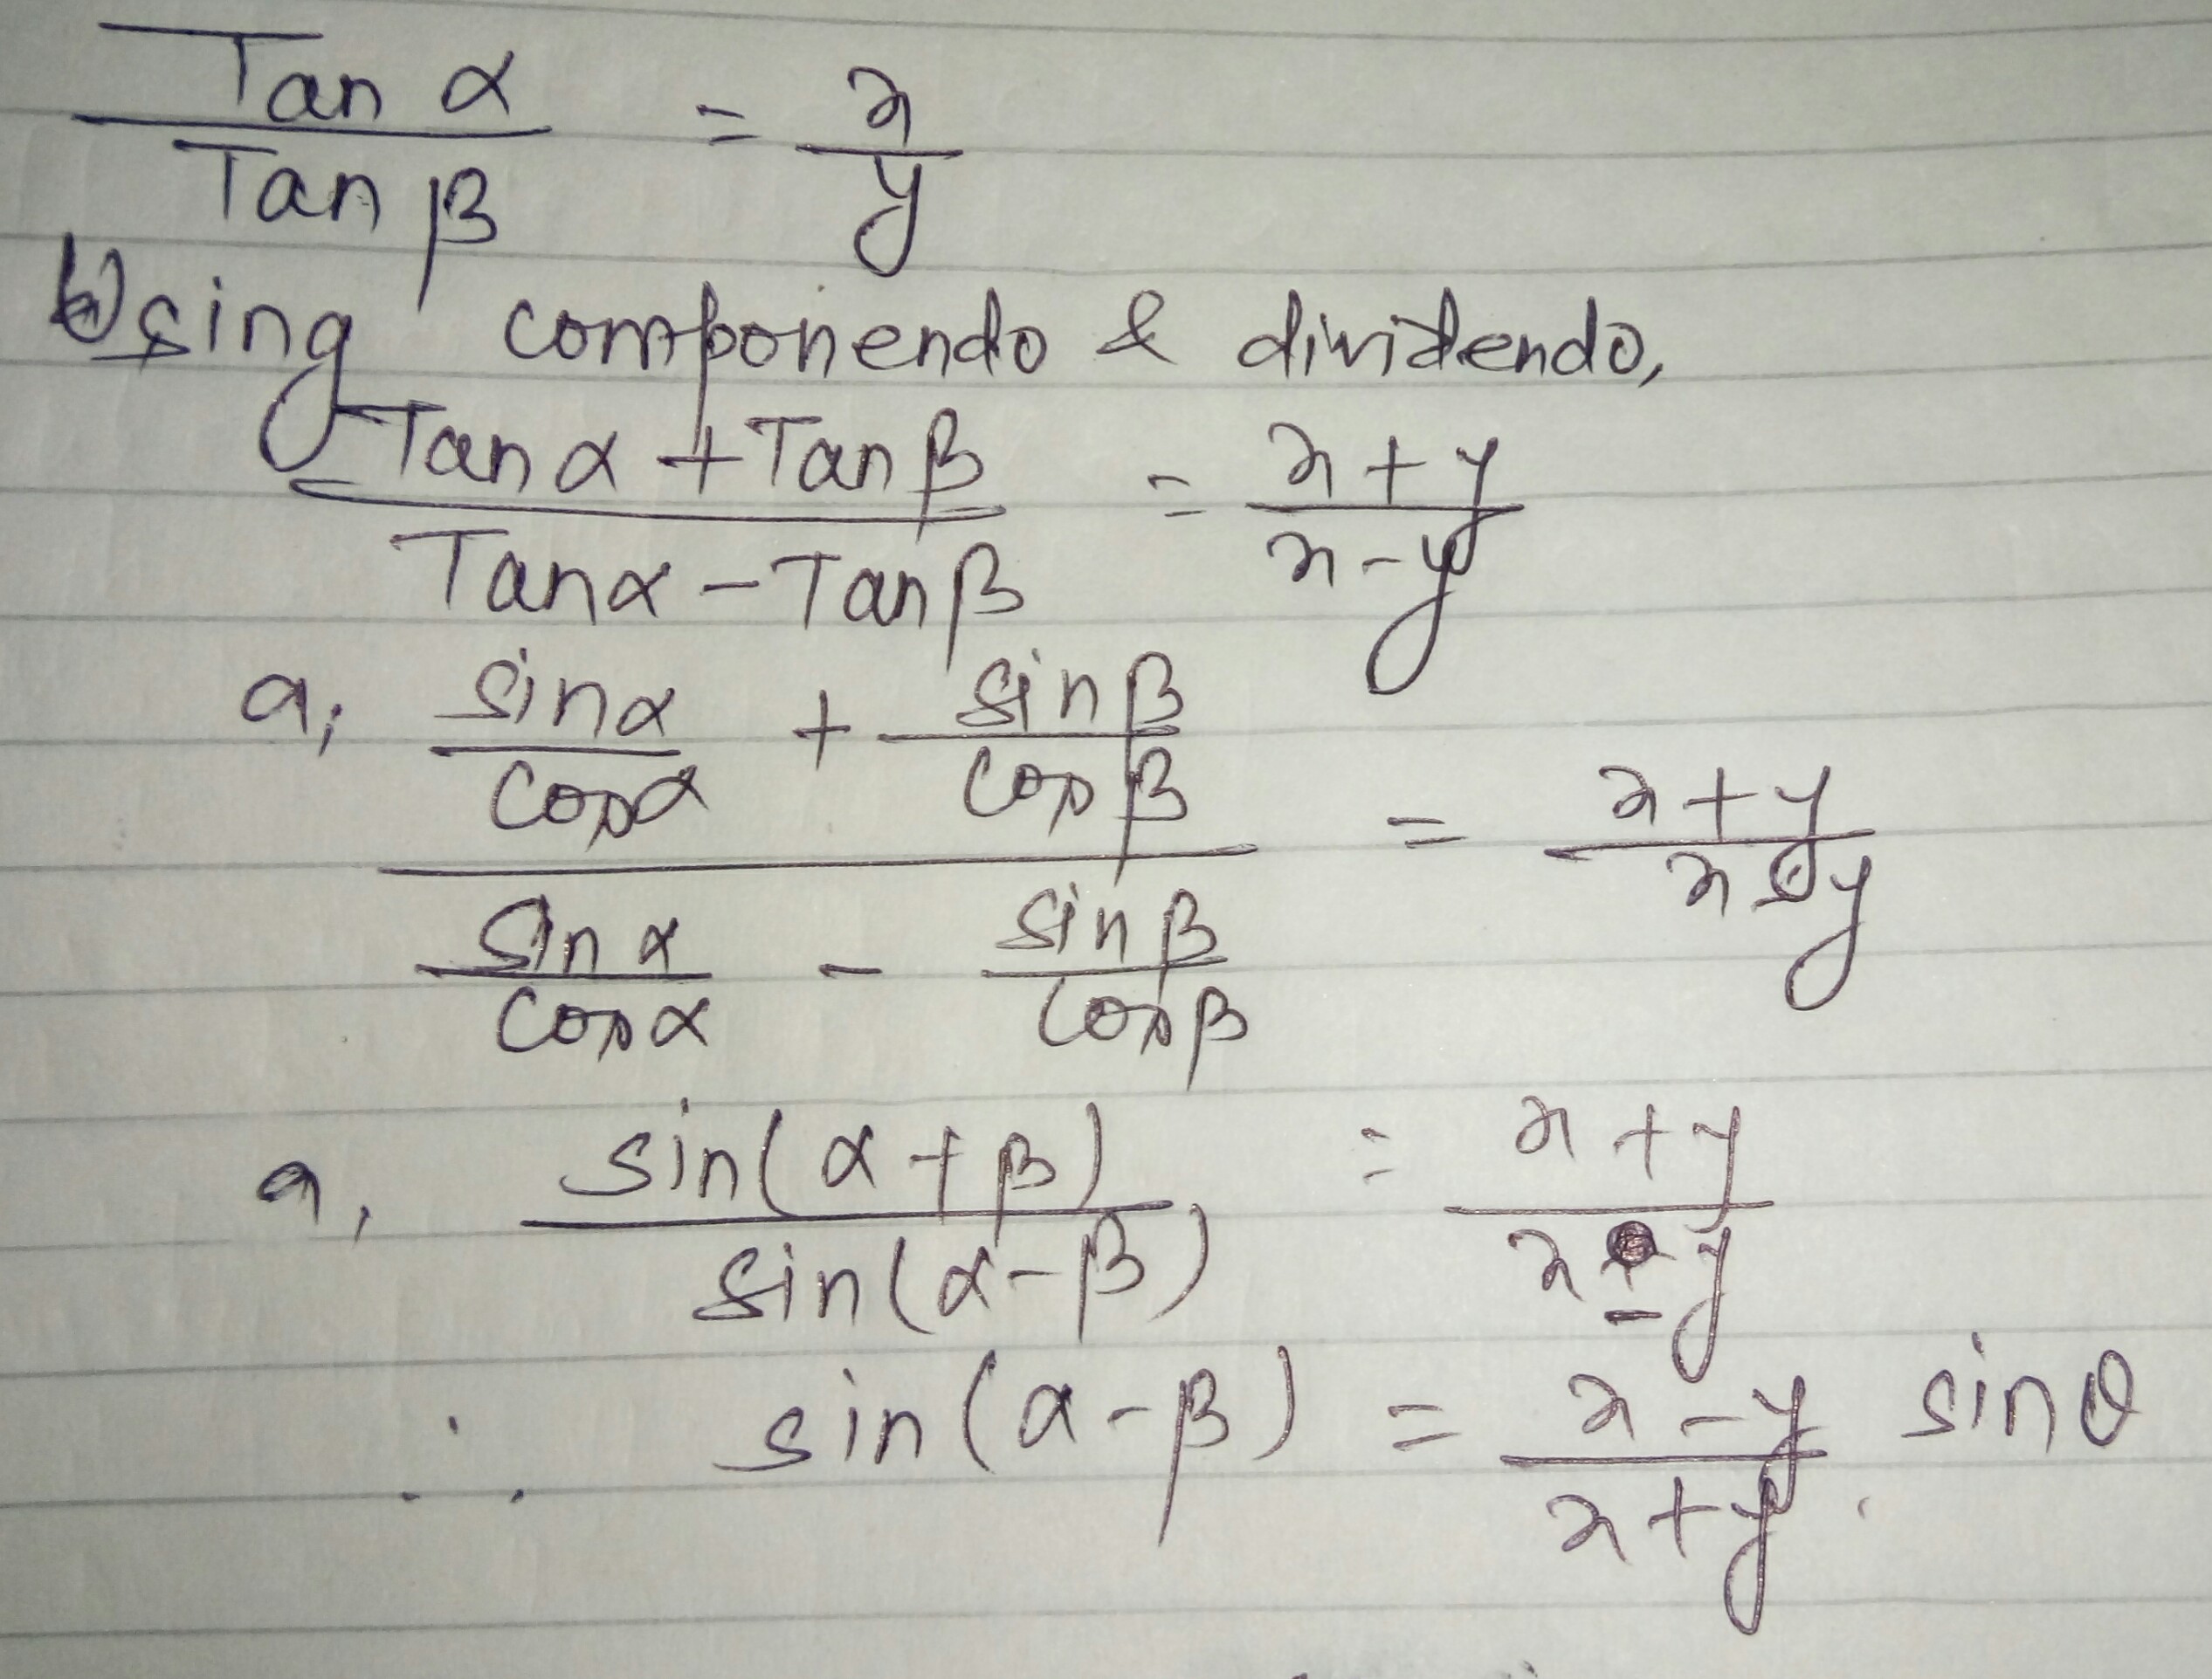 Tan α / Tan β = x / y
Using componendo & dividendo,
(Tan α + Tan β) / (Tan α - Tan β) = (x + y) / (x - y)
a, (sin α / cos α + sin β / cos β) / (sin α / cos α - sin β / cos β) = (x + y) / (x - y)
a, sin(α + β) / sin(α - β) = (x + y) / (x - y)
∴ sin(α - β) = (x - y) / (x + y) . sin θ